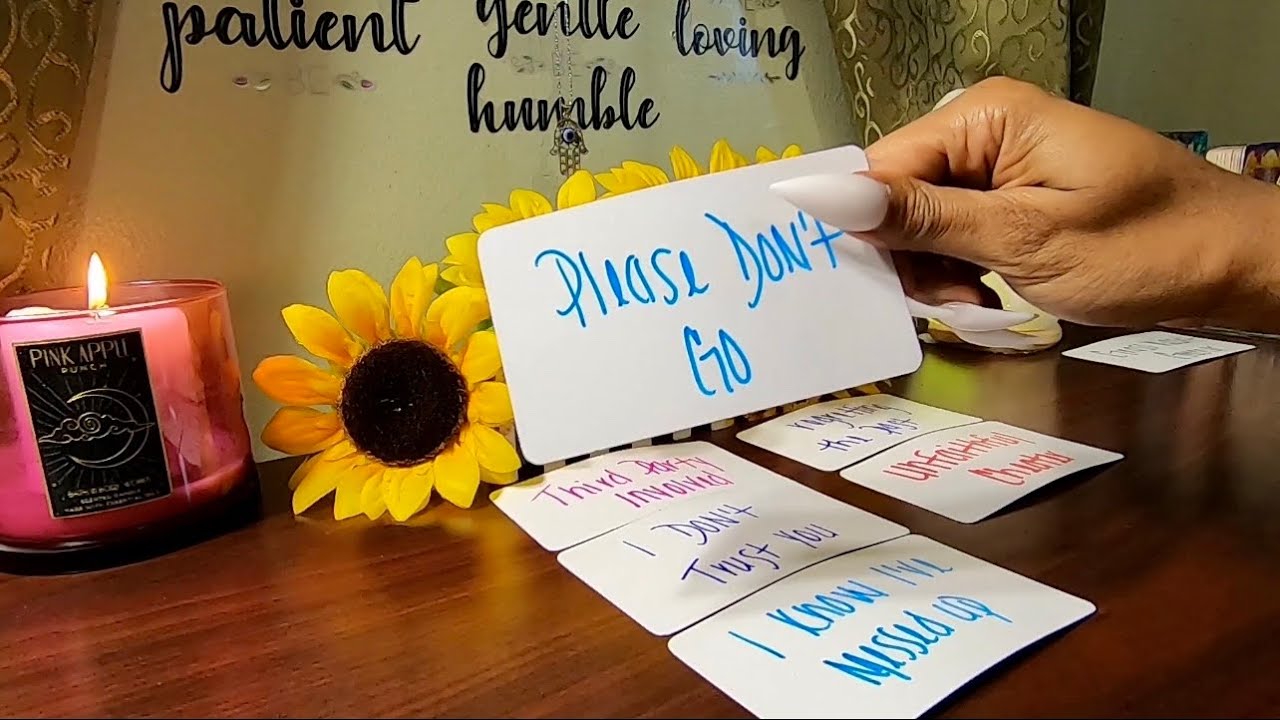 patient gentle loving
humble
PINK APPL
PUNCH
Please DON'T
GO
Third Party
Involved
I DON'T
Trust You
I KNOW I'VE
Messed up
the